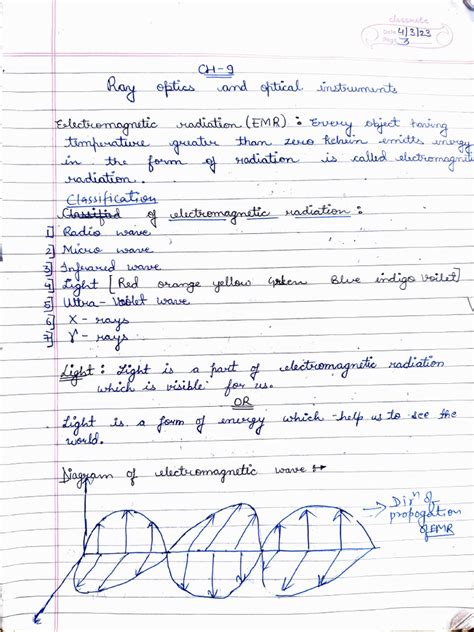 classmate
Date 4/3/23
Page 3
CH-9
Ray optics and optical instruments
Electromagnetic radiation (EMR) : Every object having
timperature greater than zero kehein emitts energy
in the form of radiation is called electromagnetic
radiation.
Classification
Classified of electromagnetic radiation :
1] Radio wave
2] Micro wave
3] Infrared wave
4] Light [Red orange yellow Green Blue indigo Voilet]
5] Ultra-Voilet wave
6] X-rays
7] γ-rays
Light : Light is a part of electromagnetic radiation
which is visible for us.
OR
Light is a form of energy which help us to see the
world.
Diagram of electromagnetic wave :→
→ Dirⁿ of
propogation
of EMR